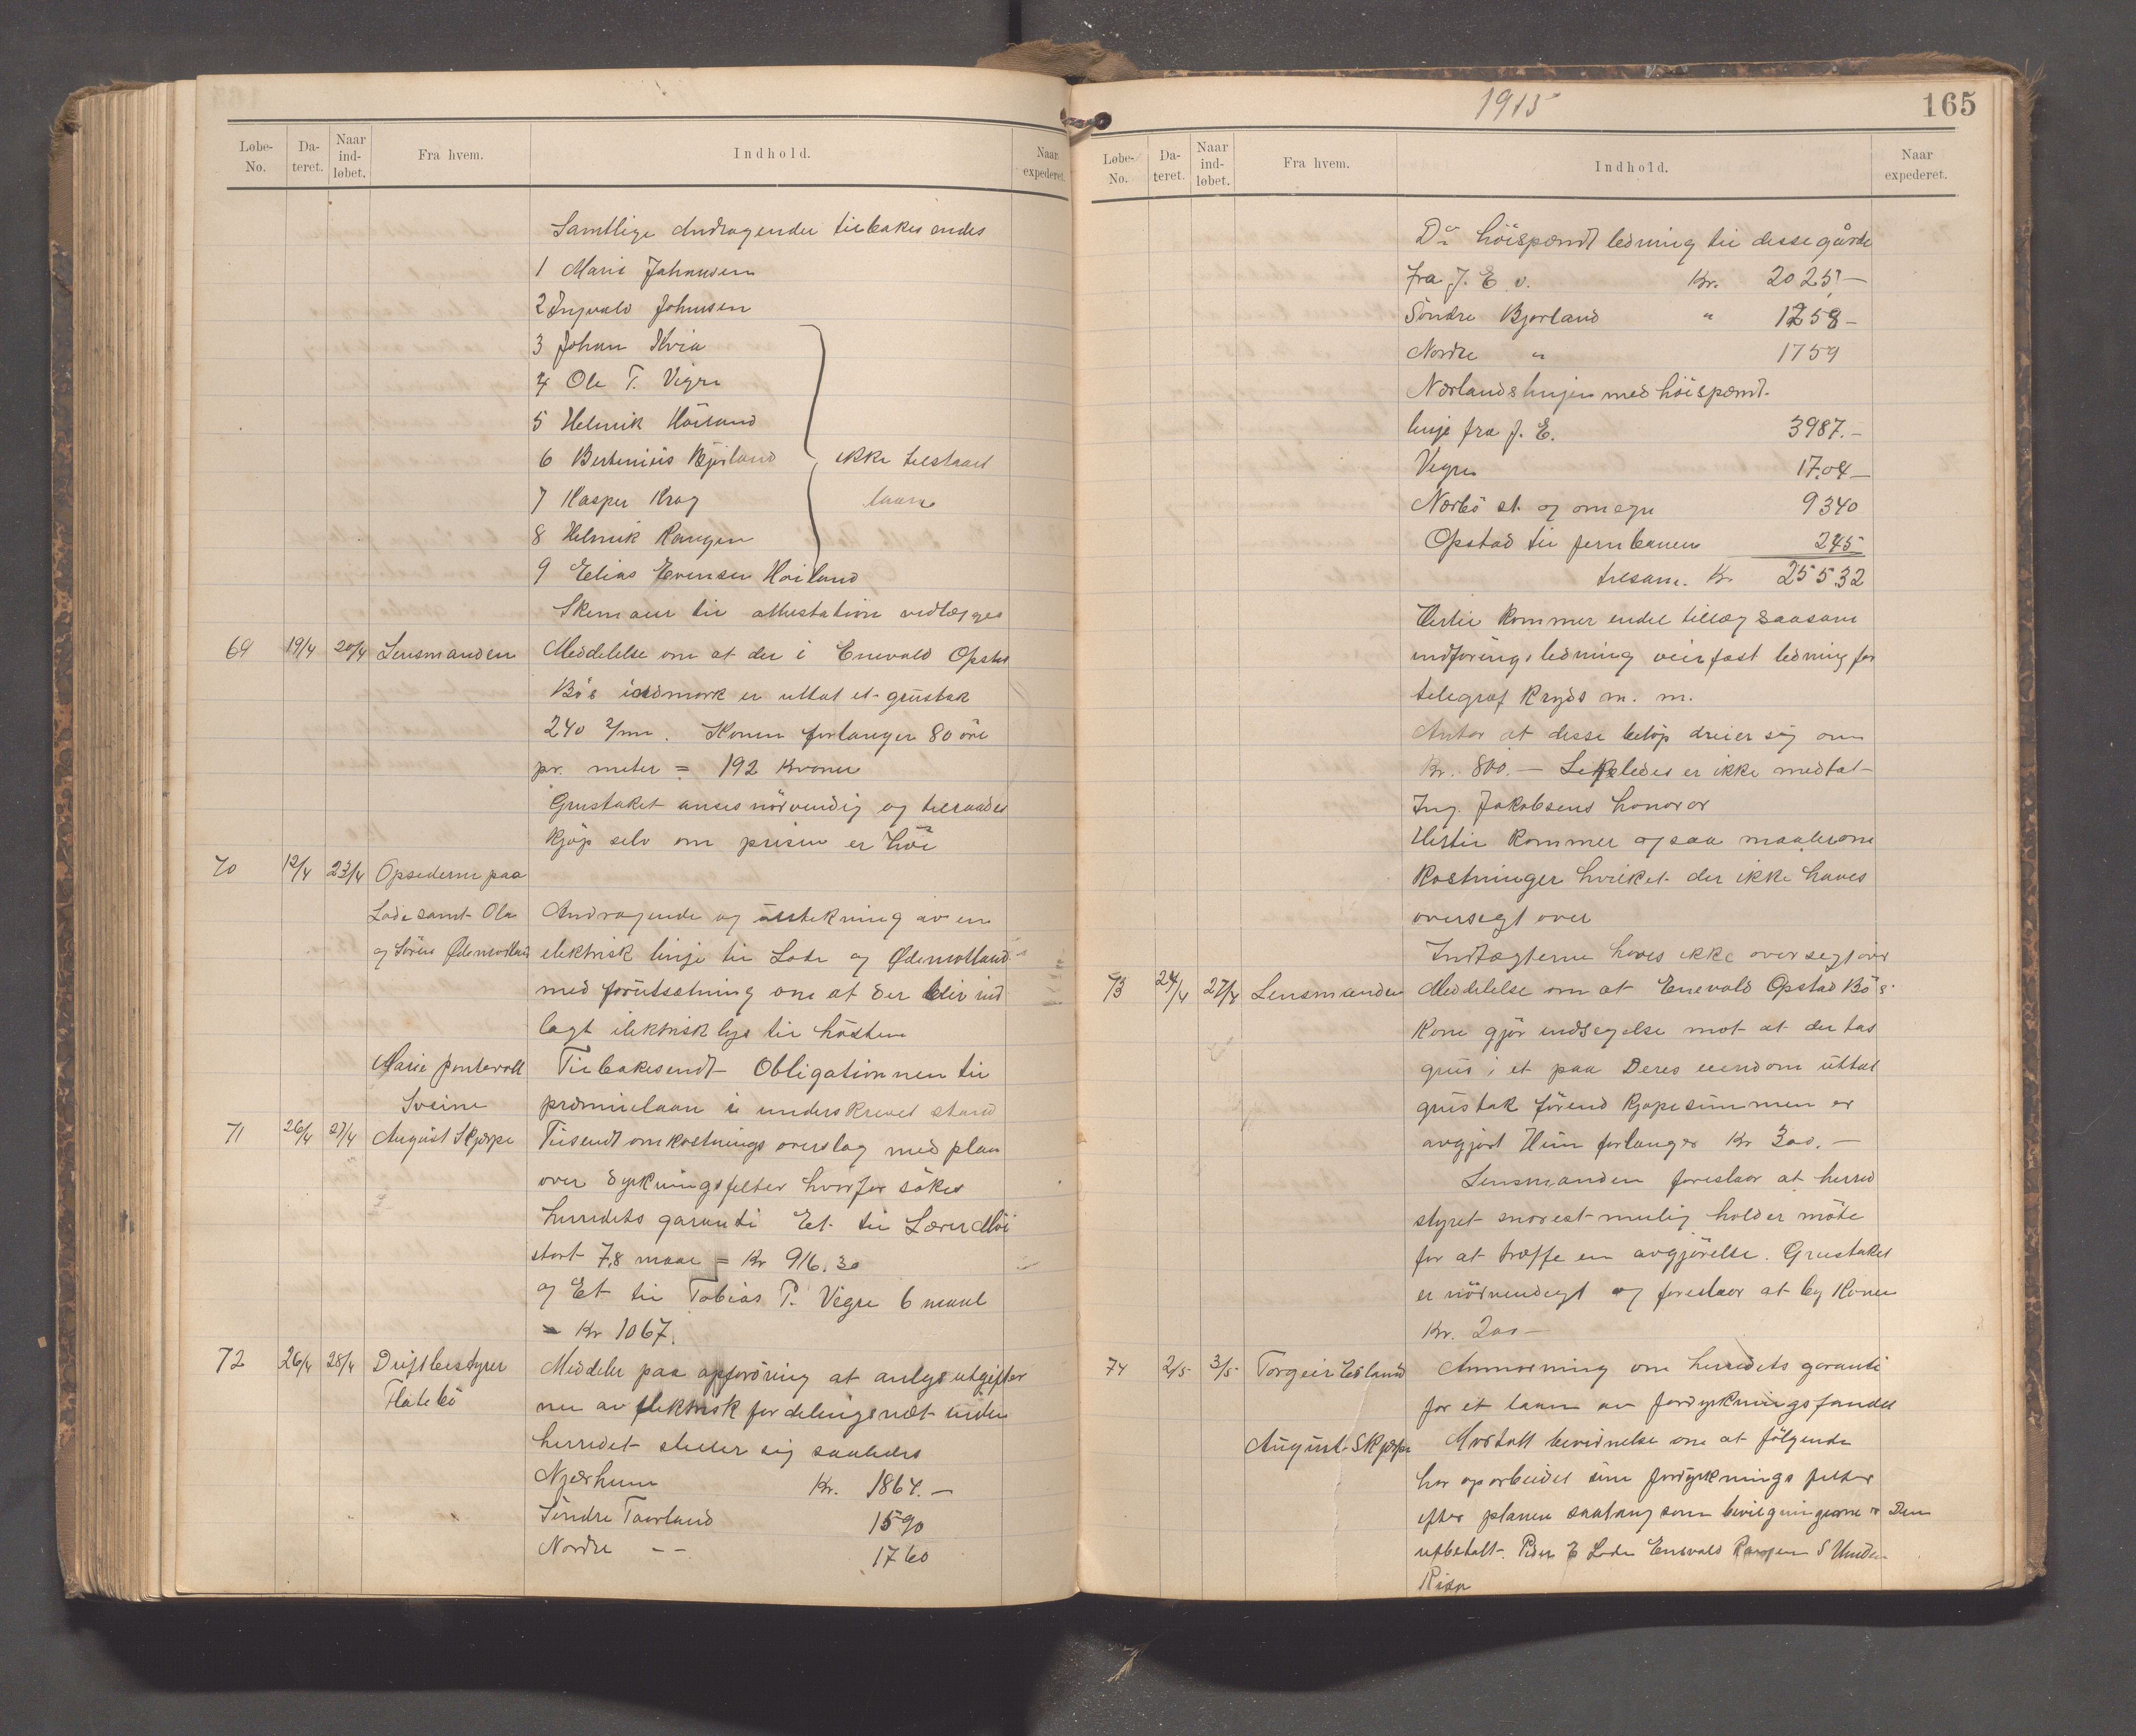 Løbe-No. Da-teret. Naar ind-løbet. Fra hvem. Indhold. Naar expederet.
Samtlige Andragender tilbakesendes
1 Marie Johnsen
2 Ingvald Johnsen
3 Johan Kvia
4 Ole T. Vigre
5 Helmik Höiland
6 Bertinius Bjorland ikke tilstaaet
7 Kasper Krag laan
8 Helmik Rangen
9 Elias Evensen Höiland
Skemaer til attestation vedlægges
69 19/4 20/4 Lensmanden Meddelelse om at der i Enevald Opstad
Bö's indmark er uttat et grustak
240 □/m. Konen forlanger 80 öre
pr. meter = 192 kroner
Grustaket anses nörvendig og tilraades
kjöp selv om prisen er höi
70 12/4 23/4 Opsederne paa
Lode samt Ola Andragende og antekning av en
og Sören Ødemotland elektrisk linje til Lode og Ødemotland
med forutsætning om at der blir ind
lagt elektrisk lys til hösten
Marie Pontevoll Tilbakesendt Obligationnen til
Sveine præmielaan i underskrevet stand
71 26/4 27/4 August Skjærpe Tilsendt omkostnings overslag med plan
over dyrkningsfelter hvorfor sökes
herredets garanti Et til Lærer Moi
stort 7,8 maal = Kr 916.30
og Et til Tobias P. Vigre 6 maal
= Kr 1067.
72 26/4 28/4 Driftbestyrer Meddeler paa opfordring at anlægsutgifter
Flatebö nen av elektrisk fordelingsnæt inden
herredet stiller sig saaledes
Njærheim Kr. 1864.—
Söndre Taarland 1590
Nordre — 1760
1915
165
Løbe-No. Da-teret. Naar ind-løbet. Fra hvem. Indhold. Naar expederet.
Do höispændt ledning til disse gårde
fra J. E. v. Kr. 2025,—
Söndre Bjorland " 1258—
Nordre " 1759
Nærlandslinjen med höispændt-
linje fra J. E. 3987.—
Vigre 1704—
Nærbö st. og omegn 9340
Opstad til jernbanen 245
tilsam. Kr. 25532
Hertil kommer endel tillæg saasom
indförings ledning veirfast ledning for
telegraf kryds m. m.
Antar at disse belöp dreier sig om
Kr. 800.— Likeledes er ikke medtat
Ing. Jakobsens honorar
Hertil kommer ogsaa maalerom
kostninger hvilket der ikke haves
oversegt over
Indtægterne haves ikke oversegt over
73 24/4 27/4 Lensmanden Meddelelse om at Enevald Opstad Bö's
kone gjör indsegelse mot at der tas
grus i et paa Deres eiendom uttat
grustak förend kjøpesummen er
avgjort Hun forlanger Kr 300.—
Lensmanden foreslaar at herred
styret snarest mulig holder möte
for at træffe en avgjörelse. Grustaket
er nörvendigt og foreslaar at by Konen
Kr. 200—
74 2/5 3/5 Torgeir Eiland Anmodning om herredets garanti
for et laan av fordyrkningsfondet
August Skjærpe Motatt bevidnelse om at fölgende
har oparbeidet sine fordyrknings felter
efter planen saalang som bevilgningerne er Dem
utbetalt. Peder E Lode Enevald Rangen S Unde-
Risa